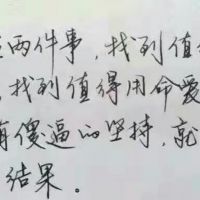 两件事,找到值
,找到值得用命爱
有傻逼的坚持,就
结果。